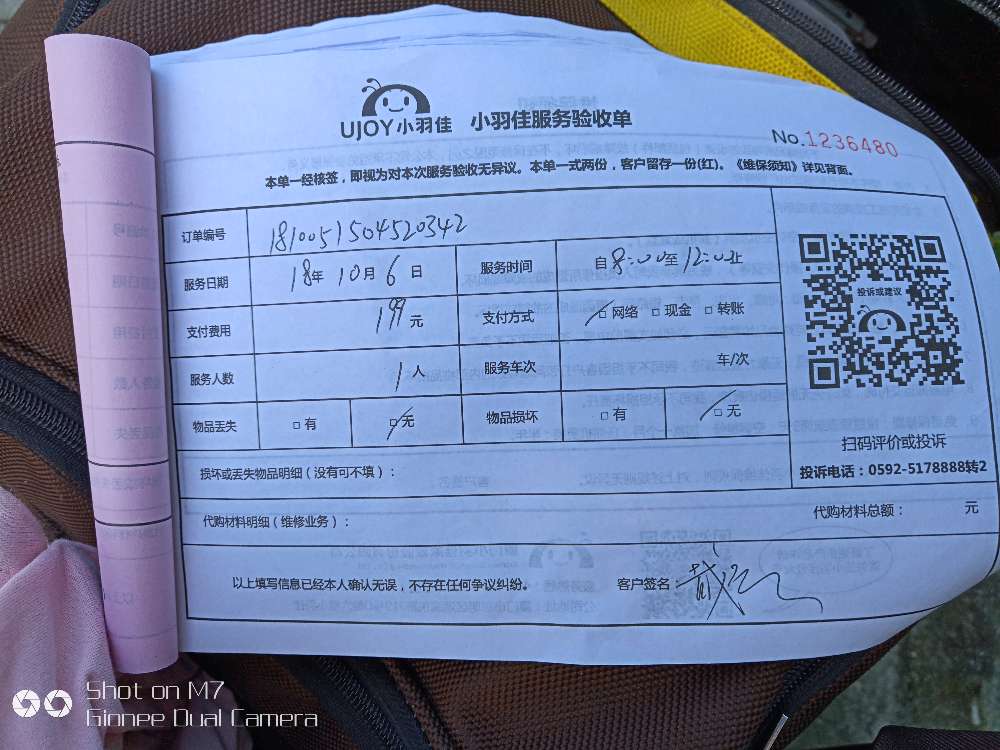 UJOY小羽佳 小羽佳服务验收单
No.1236480
本单一经核签，即视为对本次服务验收无异议。本单一式两份，客户留存一份(红)。《维保须知》详见背面。
订单编号 1810051504520342
服务日期 18年10月6日 服务时间 自8:00至12:00止
支付费用 199元 支付方式 □网络 □现金 □转账
服务人数 1人 服务车次 车/次
物品丢失 □有 □无 物品损坏 □有 □无
投诉或建议
扫码评价或投诉
投诉电话：0592-5178888转2
损坏或丢失物品明细（没有可不填）：
代购材料明细（维修业务）： 代购材料总额： 元
以上填写信息已经本人确认无误，不存在任何争议纠纷。 客户签名：
Shot on M7
Gionee Dual Camera